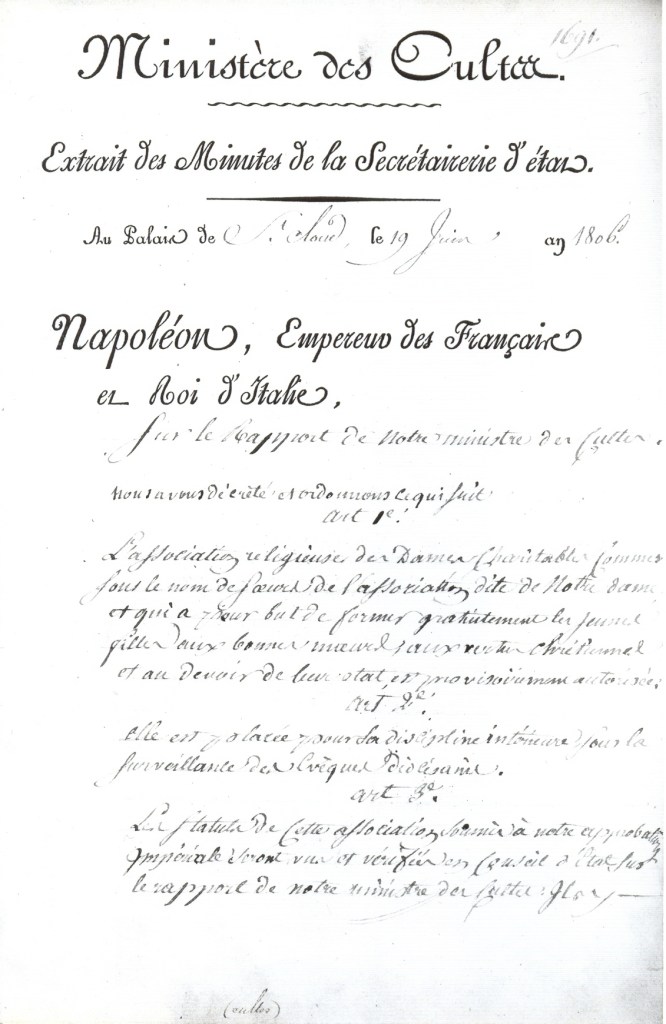 1691.
Ministère des Cultes.
Extrait des Minutes de la Secrétairerie d'état.
Au Palais de St. Cloud, le 19 Juin an 1806.
Napoléon, Empereur des Français
et Roi d'Italie,
Sur le Rapport de notre ministre des Cultes.
nous avons décrété et ordonnons ce qui suit
art 1er.
L'association religieuse des Dames Charitables Connues
sous le nom de sœurs de l'association dite de Notre dame
et qui a pour but de former gratuitement les jeunes
filles aux bonnes mœurs, aux vertus chrétiennes
et au devoir de leur état est provisoirement autorisée.
art 2e.
elle est placée pour sa discipline intérieure sous la
surveillance des Evêques diocésains.
art 3e.
Les statuts de cette association soumis à notre approbation
Impériale seront vus et vérifiés en Conseil d'état sur
le rapport de notre ministre des Cultes
(cultes)